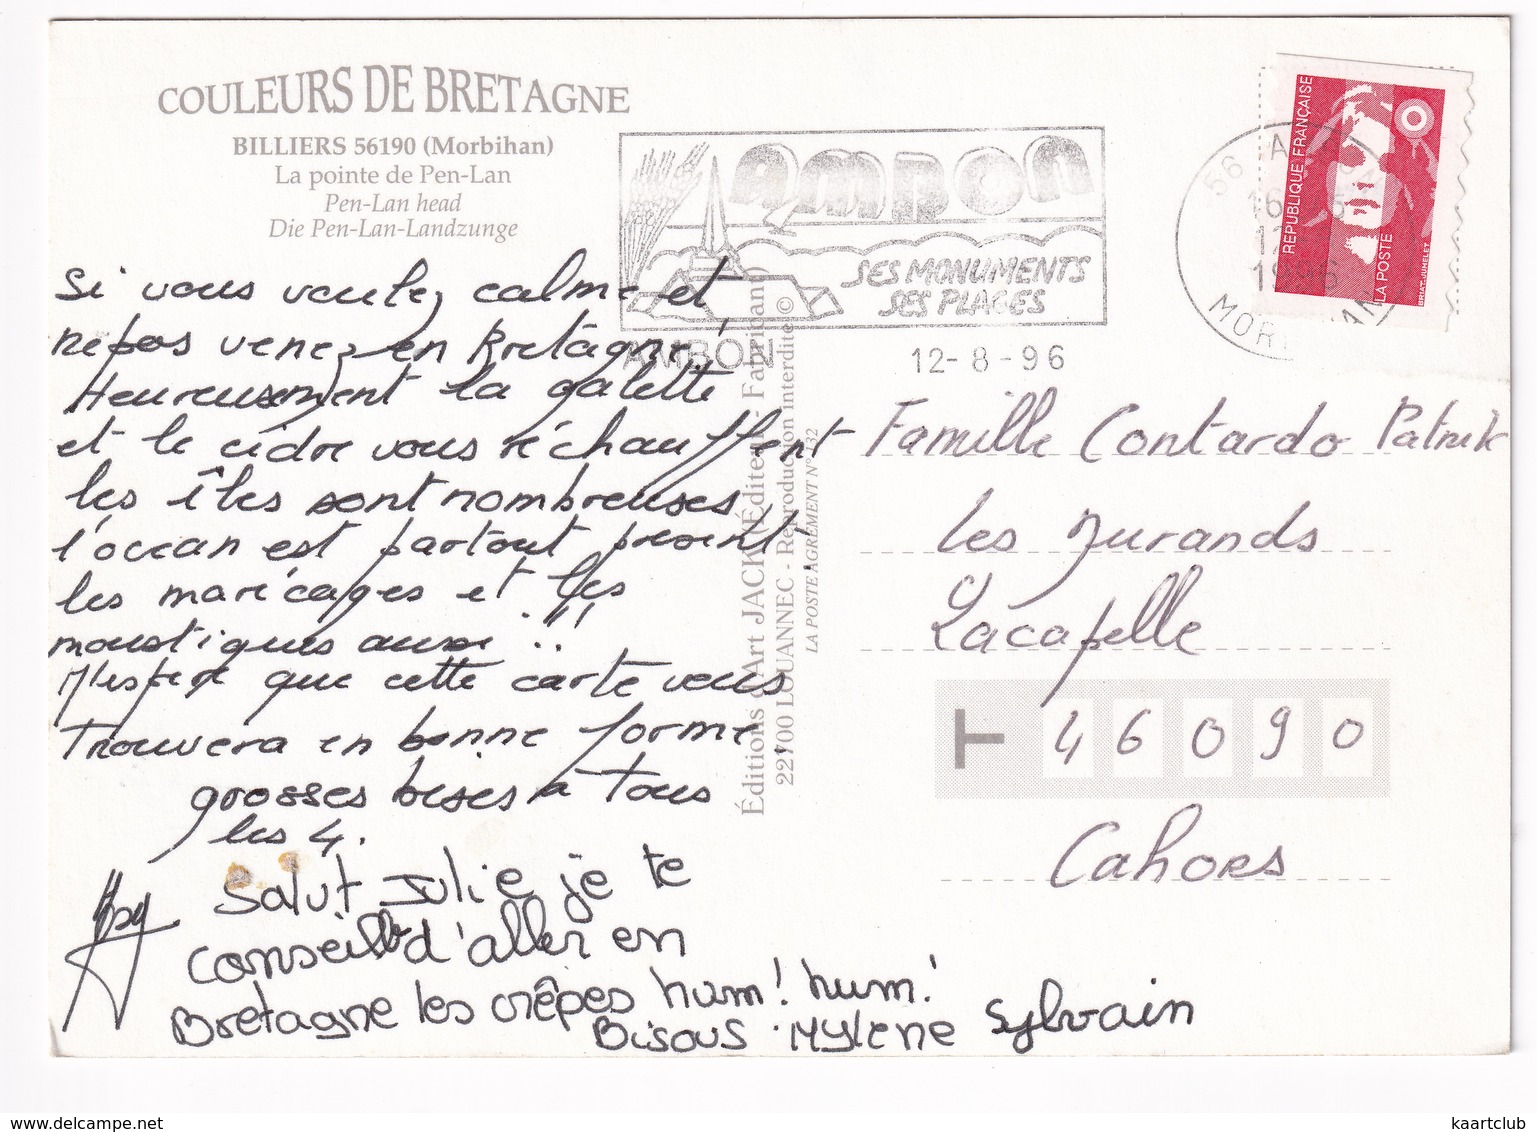 COULEURS DE BRETAGNE
BILLIERS 56190 (Morbihan)
La pointe de Pen-Lan
Pen-Lan head
Die Pen-Lan-Landzunge
AMBON
SES MONUMENTS
SES PLAGES
AMBON
12-8-96
56 A
16
1996
MOR AN
REPUBLIQUE FRANÇAISE
LA POSTE
BRIAT-JUMELET
Si vous voulez calme et
repos venez en Bretagne,
Heureusement la galette
et le cidre vous réchauffent
les îles sont nombreuses
l'océan est partout présent,
les marécages et les
moustiques aussi !!!
J'espère que cette carte vous
trouvera en bonne forme,
grosses bises à tous
les 4.
Salut Julie je te
conseille d'aller en
Bretagne les crêpes hum! hum!
Bisous Mylene Sylvain
Éditions d'Art JACK (Éditeur - Fabricant)
22700 LOUANNEC - Reproduction interdite ©
LA POSTE AGRÉMENT N° 132
Famille Contardo Patrick
Les Jurands
Lacapelle
T 46090
Cahors
https://www.delcampe.net
kaartclub